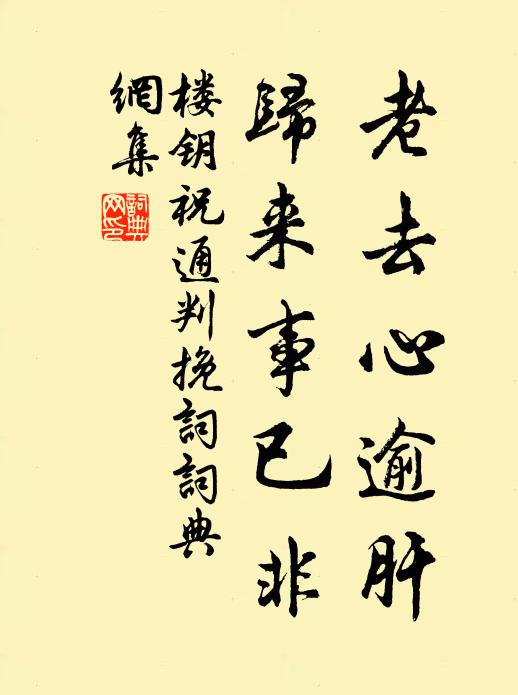 老去心逾肝
歸来事已非
楼钥祝通判挽詞詞典
網集
詞典
网印